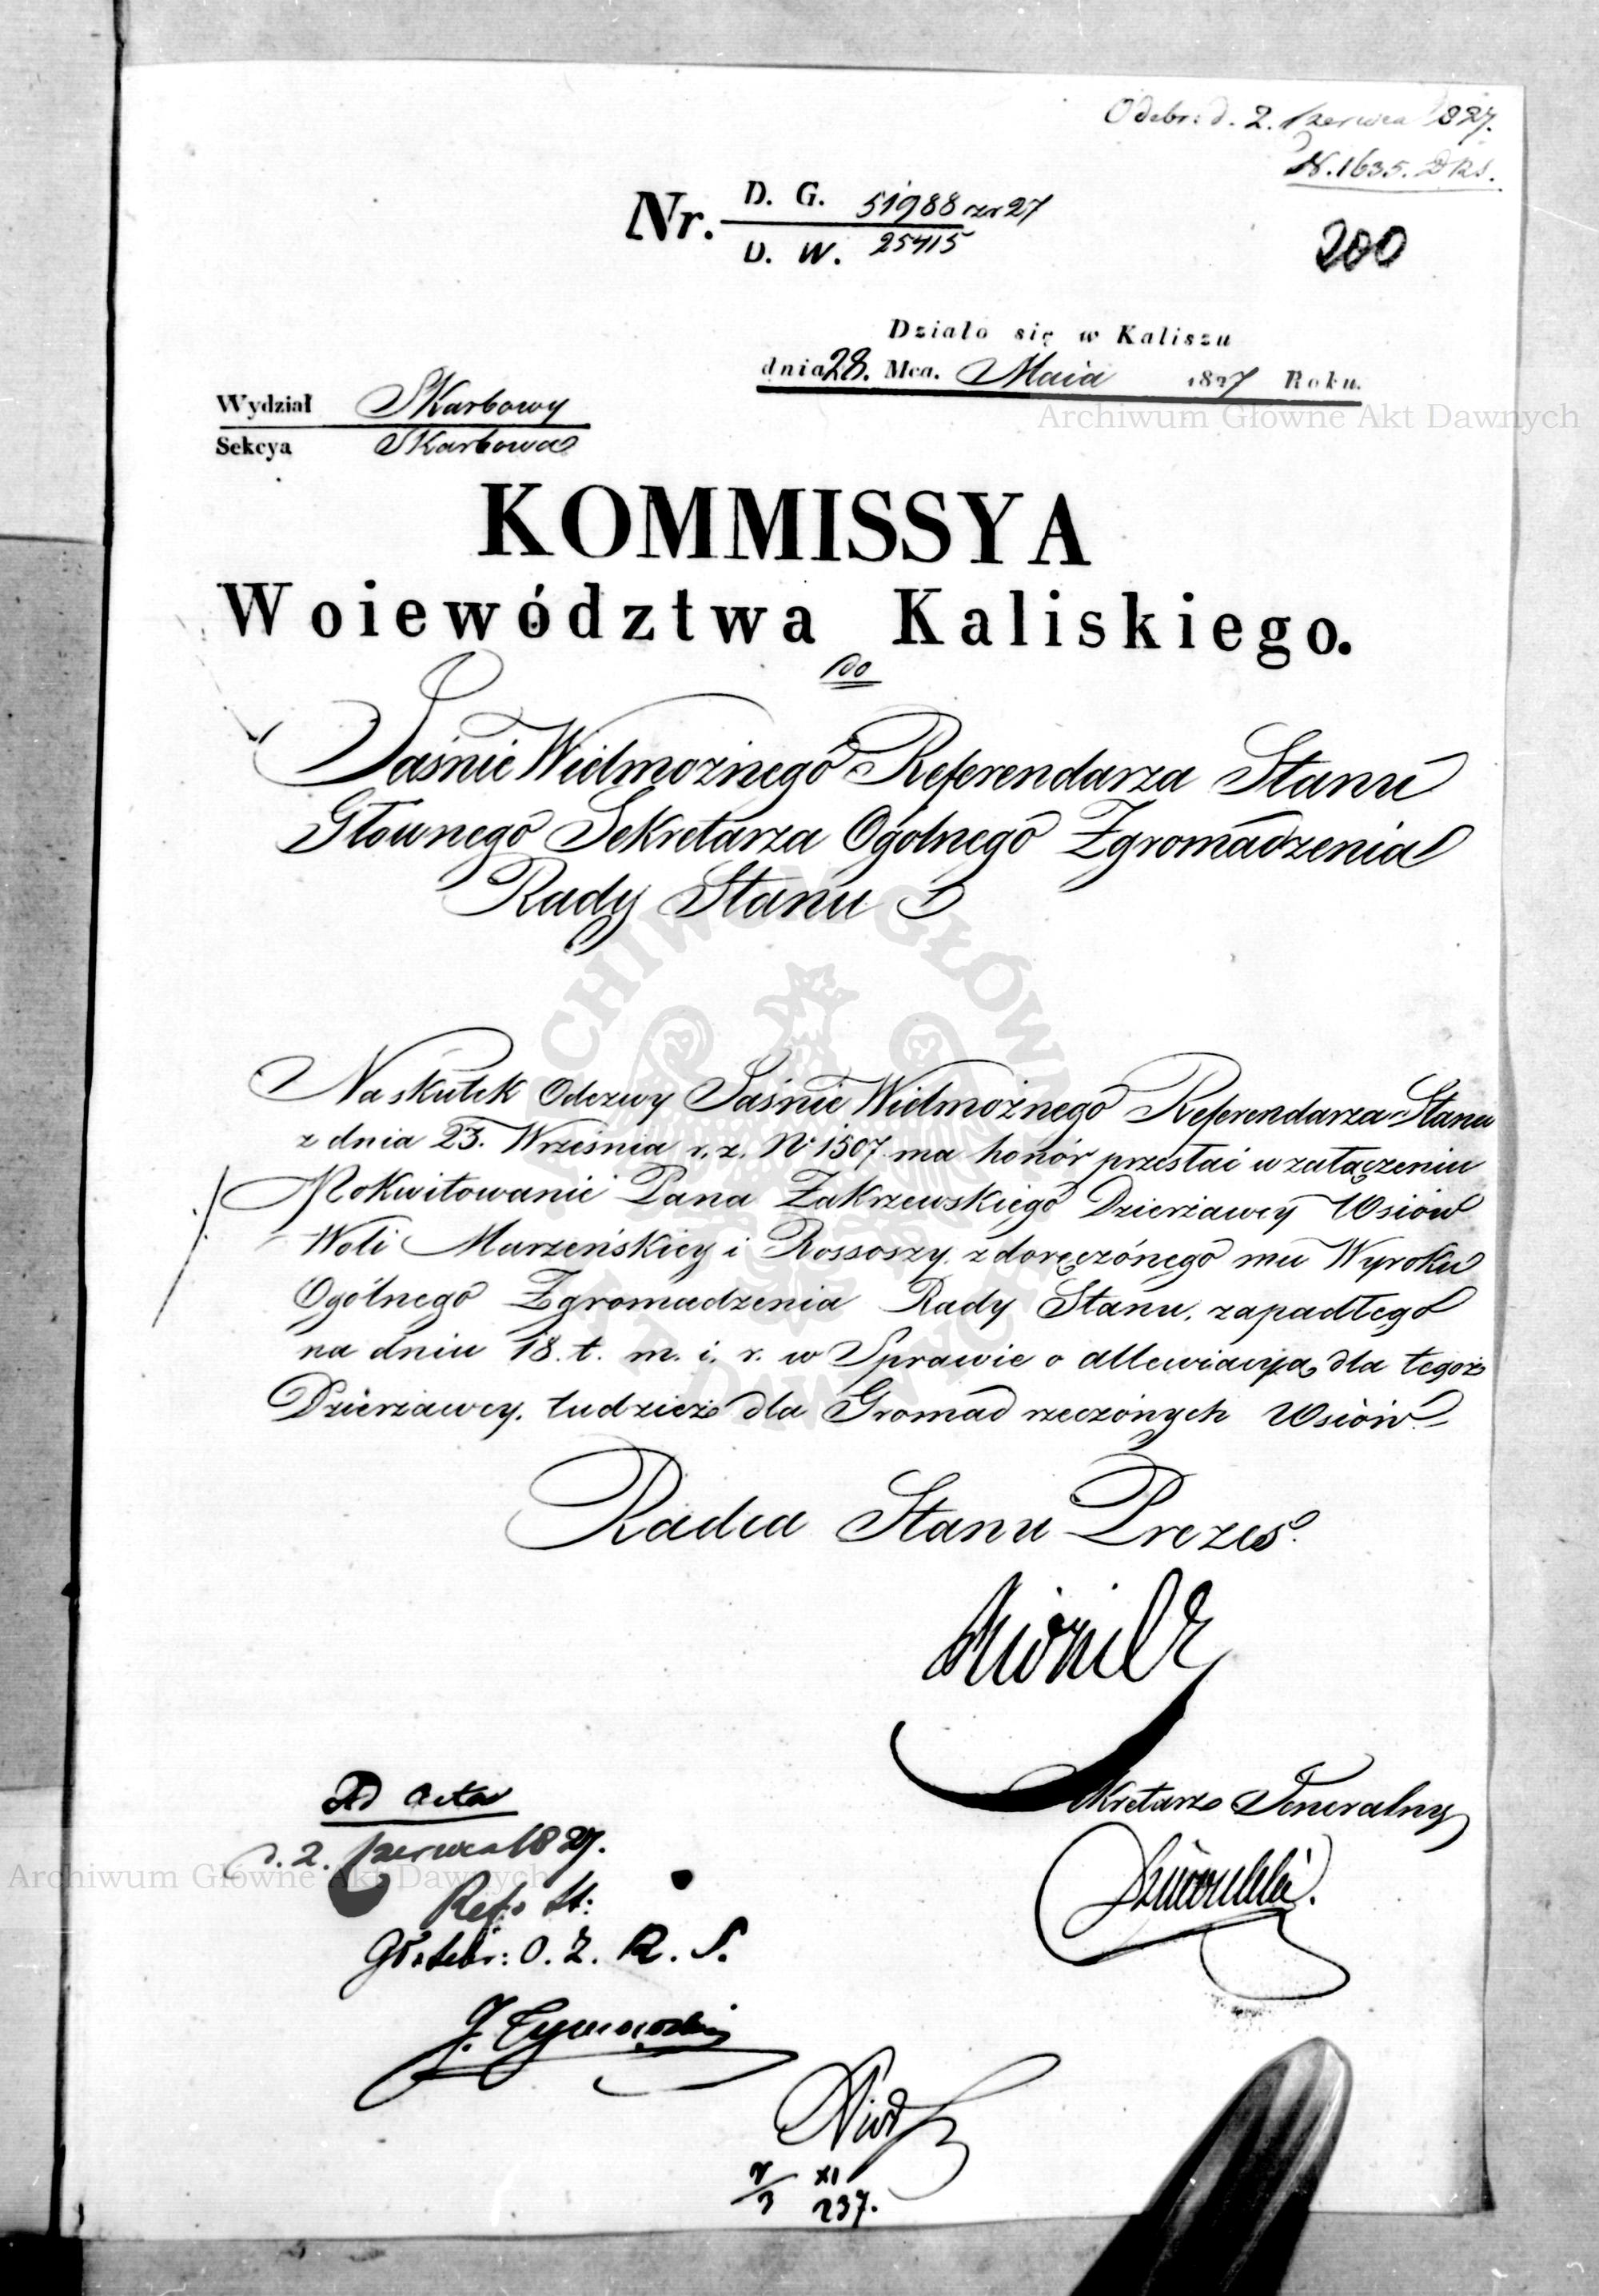 Odebr: d. 2. Czerwca 1827.
N. 1635. DRS.
Nr. D. G. 51988 za 27
D. W. 25415
200
Działo się w Kaliszu
dnia 28. Mca. Maia 1827 Roku.
Archiwum Główne Akt Dawnych
Wydział Skarbowy
Sekcya Skarbowa
KOMMISSYA
Woiewództwa Kaliskiego.
Do
Jaśnie Wielmożnego Referendarza Stanu
Głownego Sekretarza Ogolnego Zgromadzenia
Rady Stanu
ARCHIWUM GŁÓWNE AKT DAWNYCH
Na skutek Odezwy Jaśnie Wielmożnego Referendarza Stanu
z dnia 23. Września r. z. Nº 1507 ma honór przesłai w załączeniu
Pokwitowanie Pana Zakrzewskiego Dzierzawcy Wsiów
Woli Marzeńskiey i Rossoszy, z doręczónego mu Wyroku
Ogólnego Zgromadzenia Rady Stanu, zapadłego
na dniu 18. t. m. i. r. w Sprawie o allewiacyą dla tegoż
Dzierzawcy, tudzież dla Gromad rzeczónych Wsiów.
Radca Stanu Prezes
Sekretarz Jeneralny
Ad acta
d. 2. Czerwca 1827.
Archiwum Główne Akt Dawnych
Ref. St:
Gł. Sekr: O. Z. R. S.
J. Tymowski
XI
237.